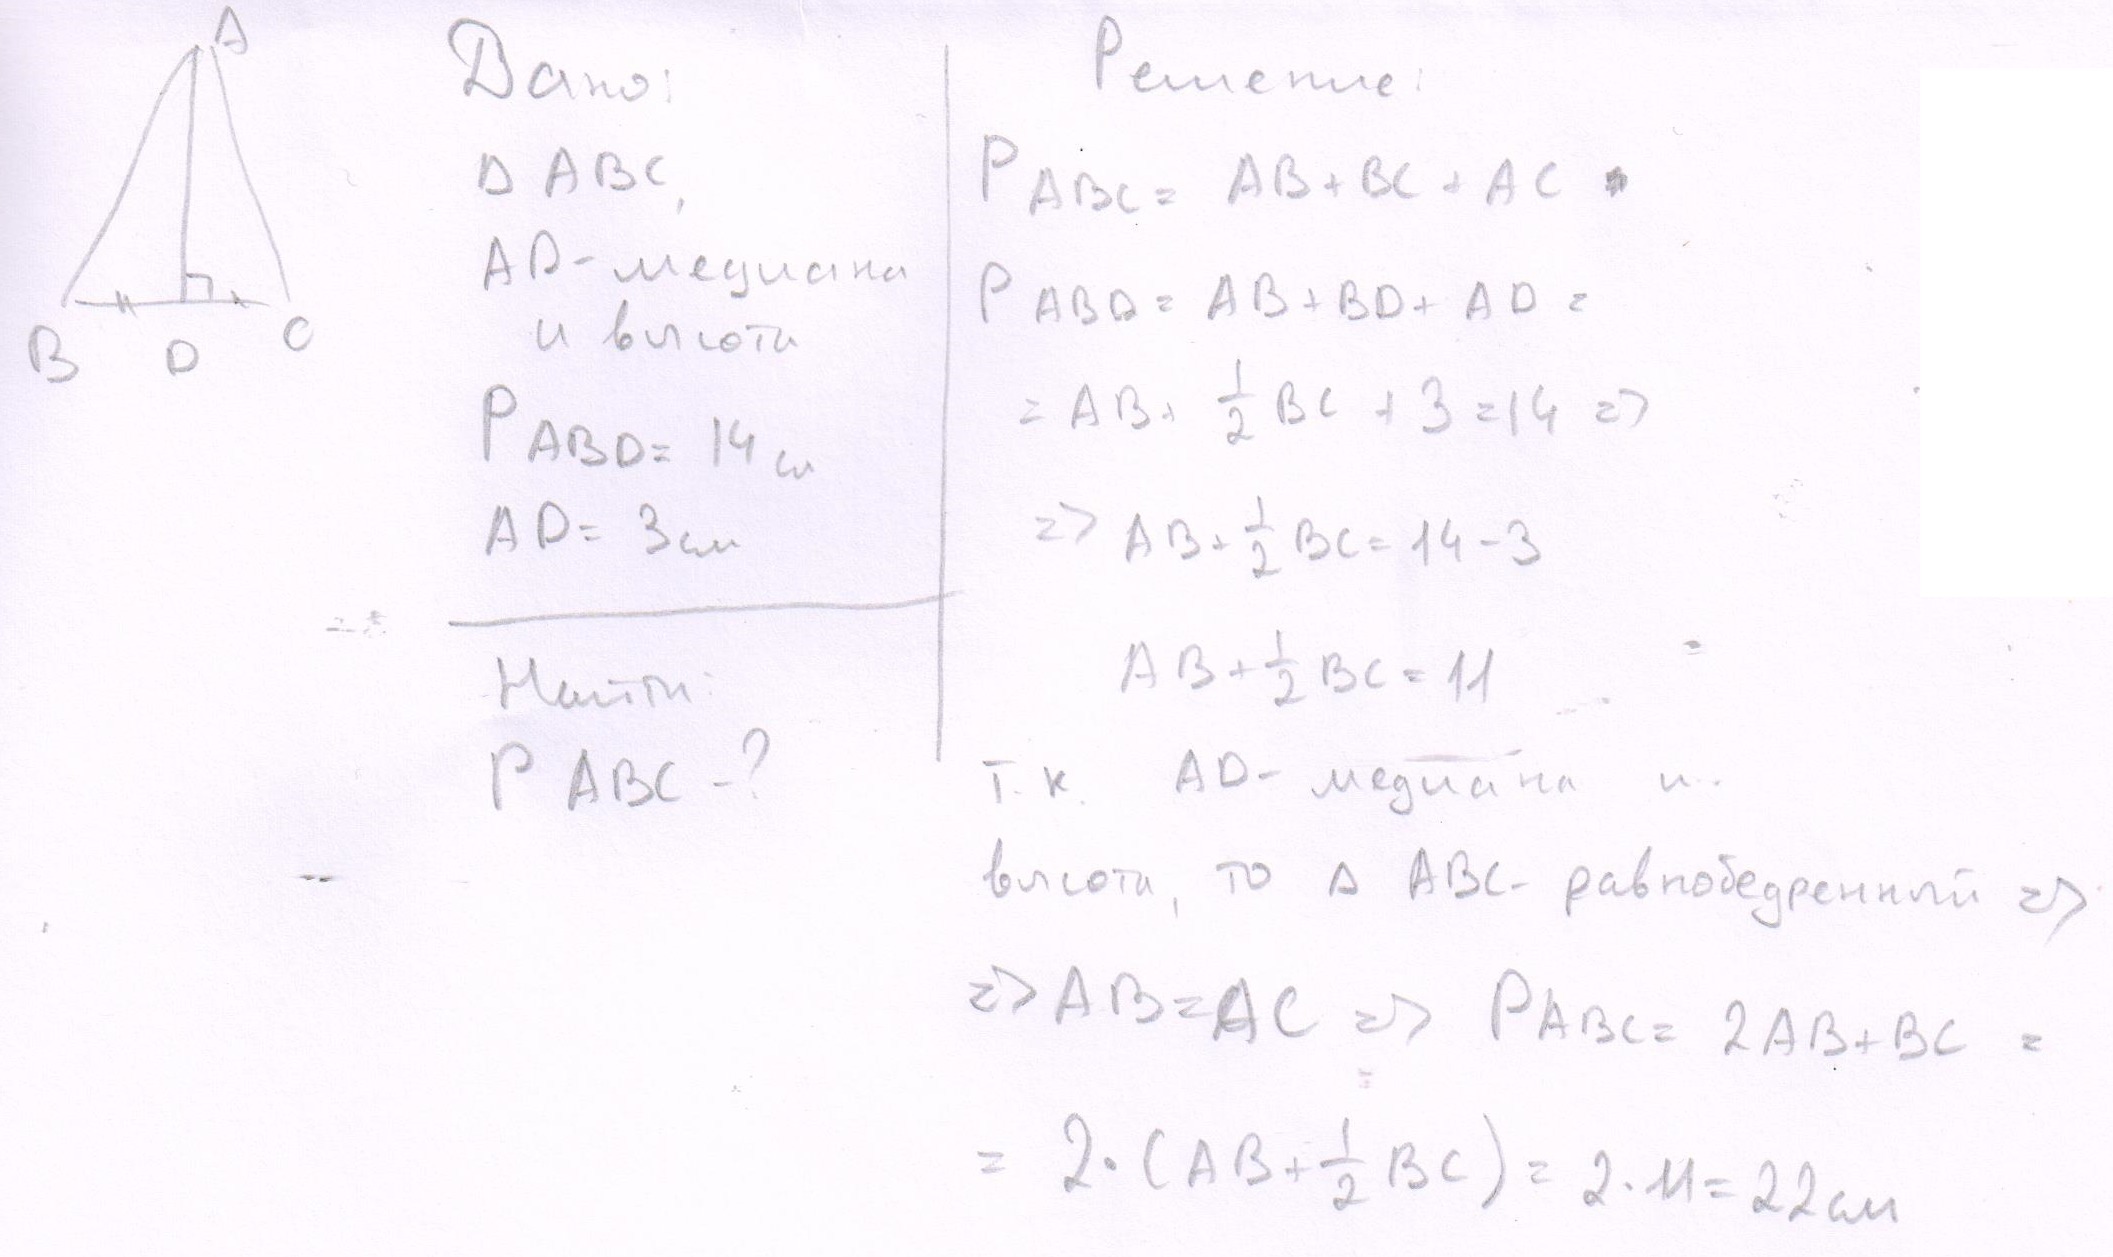 A
B D C
Дано:
Δ ABC,
AD - медиана
и высота
P ABD = 14 см
AD = 3 см
Найти:
P ABC - ?
Решение:
P ABC = AB + BC + AC
P ABD = AB + BD + AD =
= AB + 1/2 BC + 3 = 14 =>
=> AB + 1/2 BC = 14 - 3
AB + 1/2 BC = 11
т.к. AD - медиана и
высота, то Δ ABC - равнобедренный =>
=> AB = AC => P ABC = 2AB + BC =
= 2 · (AB + 1/2 BC) = 2 · 11 = 22 см